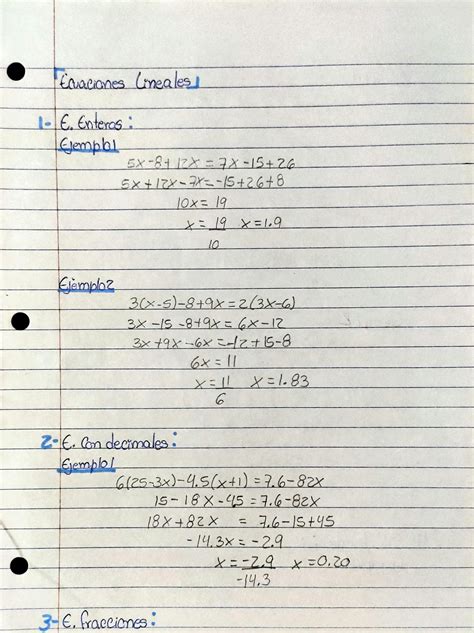 Ecuaciones Lineales
1- E. Enteros:
Ejemplo1
5x-8+12x=7x-15+26
5x+12x-7x=-15+26+8
10x= 19
x= 19 x=1.9
10
Ejemplo2
3(x-5)-8+9x=2(3x-6)
3x-15-8+9x=6x-12
3x+9x-6x=-12+15-8
6x=11
x=11 x=1.83
6
2- E. Con decimales:
Ejemplo1
6(25-3x)-4.5(x+1)=7.6-82x
15-18x-45=7.6-82x
18x+82x = 7.6-15+45
-14.3x=-2.9
x=-2.9 x=0.20
-14.3
3- E. fracciones: